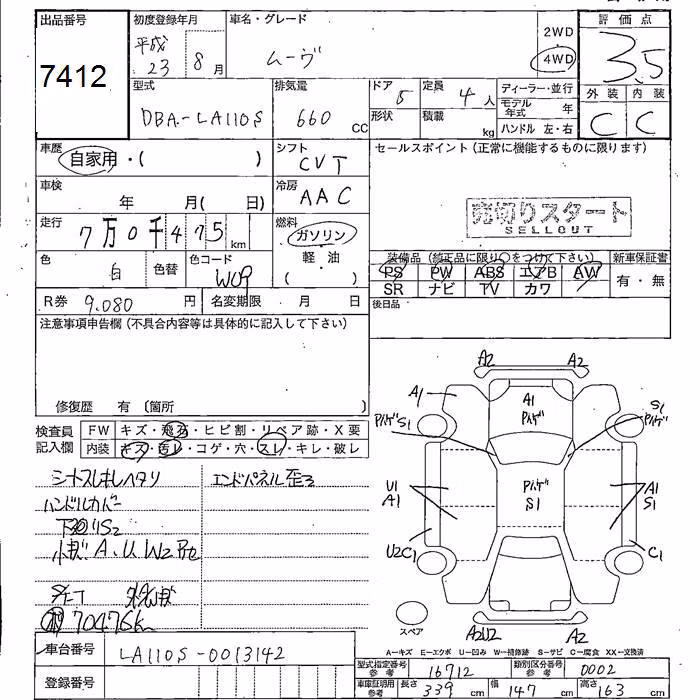 出品番号
7412
初度登録年月
平成 23 8 月
車名・グレード
ムーヴ
2WD
4WD
評価点
3.5
外装 内装
C C
型式
DBA-LA110S
排気量
660 cc
ドア 5
形状
定員 4 人
積載 kg
ディーラー・並行
モデル年式 年
ハンドル 左・右
車歴
自家用・( )
シフト
CVT
セールスポイント(正常に機能するものに限ります)
売切りスタート
SELLOUT
車検
年 月( 日)
冷房
AAC
走行
7万0千475 km
燃料
ガソリン
軽・油
( )
色
白
色替
色コード
W09
装備品(純正品に限り○をつけて下さい)
PS PW ABS エアB AW
SR ナビ TV カワ
新車保証書
有・無
R券 9.080 円
名変期限 月 日
後日品
注意事項申告欄(不具合内容等は具体的に記入して下さい)
修復歴 有 〔箇所 〕
検査員
記入欄
FW キズ・飛石・ヒビ割・リペア跡・X要
内装 キズ・汚レ・コゲ・穴・スレ・キレ・破レ
シートスレキレヘタリ
エンドパネル歪ミ
ハンドルカバー
小キズ A、U W2
70476K
A2 A2
A1
A1
バケ゛
S1
バケ゛
バケ゛S1
U1
A1
バケ゛
S1
A1
S1
U2C1
C1
A2U2
A2
スペア
A-キズ E-エクボ U-凹み W-補修跡 S-サビ C-腐食 XX-交換済
車台番号
LA110S-0013142
登録番号
型式指定番号
参考
16712
類別区分番号
参考
0002
車庫証明用
参考
長さ 339 cm 幅 147 cm 高さ 163 cm